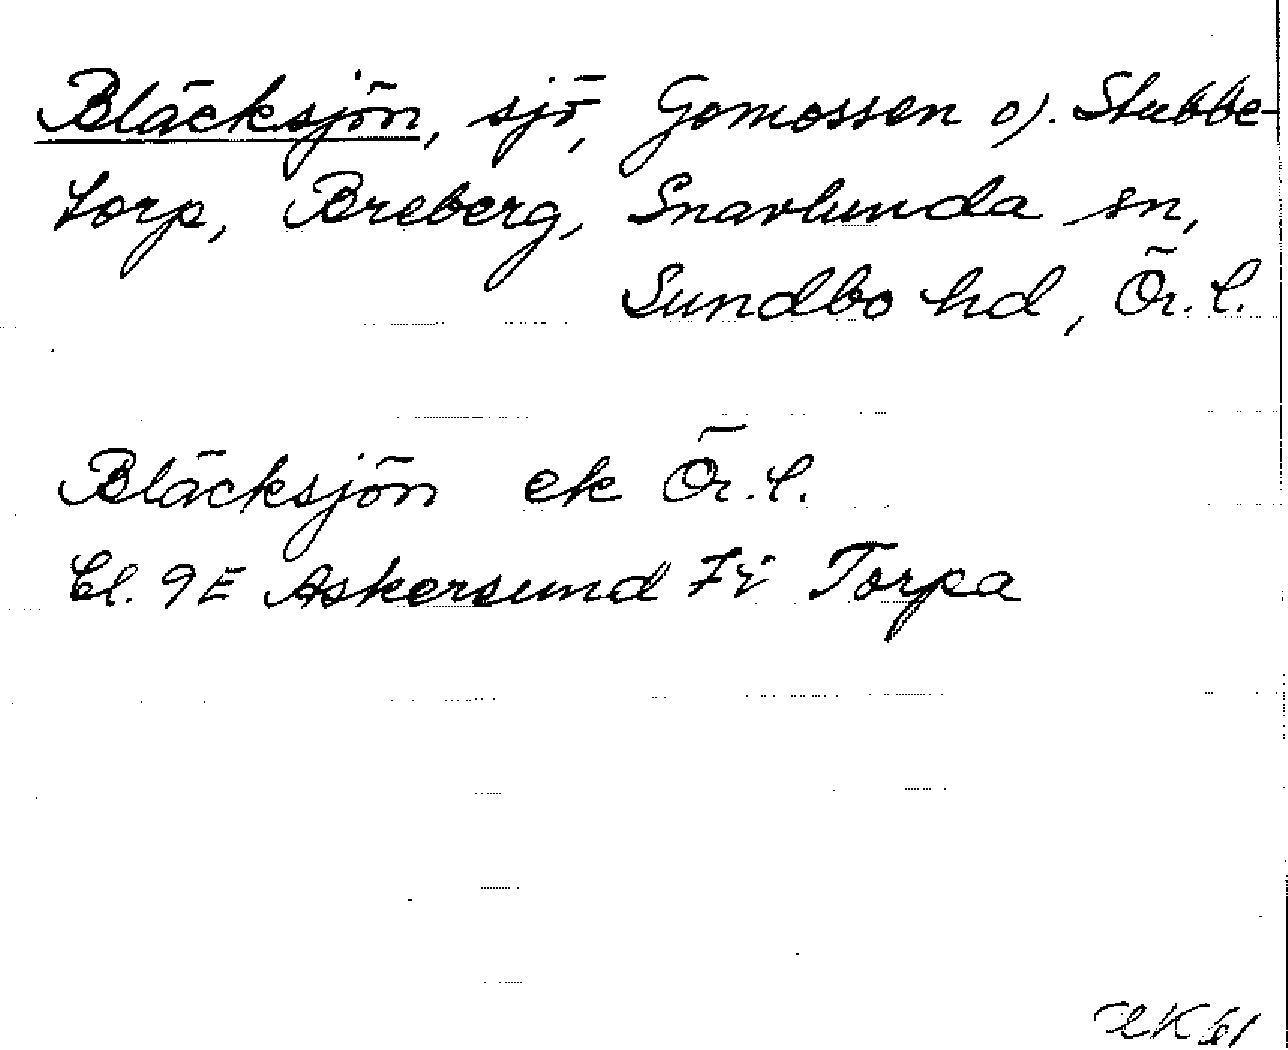 Bläcksjön, sjö, Gomossen o). Stubbe-
torp, Breberg, Snavlunda sn,
Sundbo hd, Ör. l.
Bläcksjön ek Ör. l.
Bl. 9E Askersund 7i Torpa